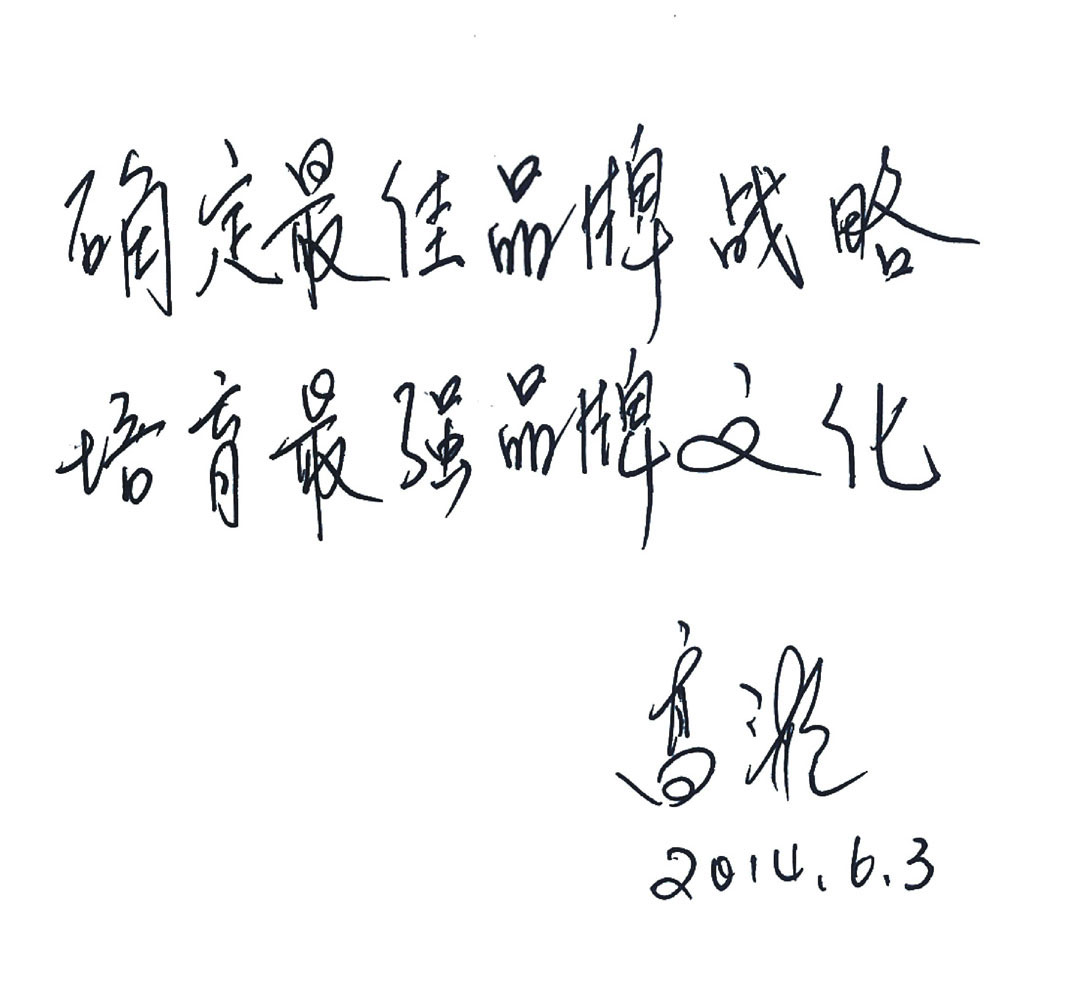 确定最佳品牌战略
培育最强品牌文化
高
2014.6.3